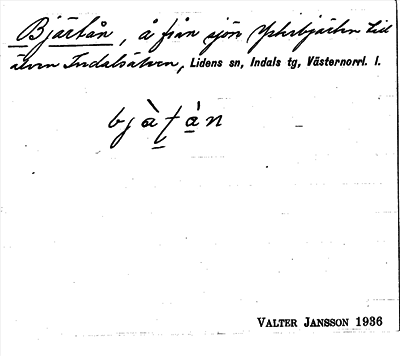 Bjärtån, å från sjön Ytterbjärten till
älven Indalsälven, Lidens sn, Indals tg, Västernorrl. l.
bjàṭà̱n
VALTER JANSSON 1936